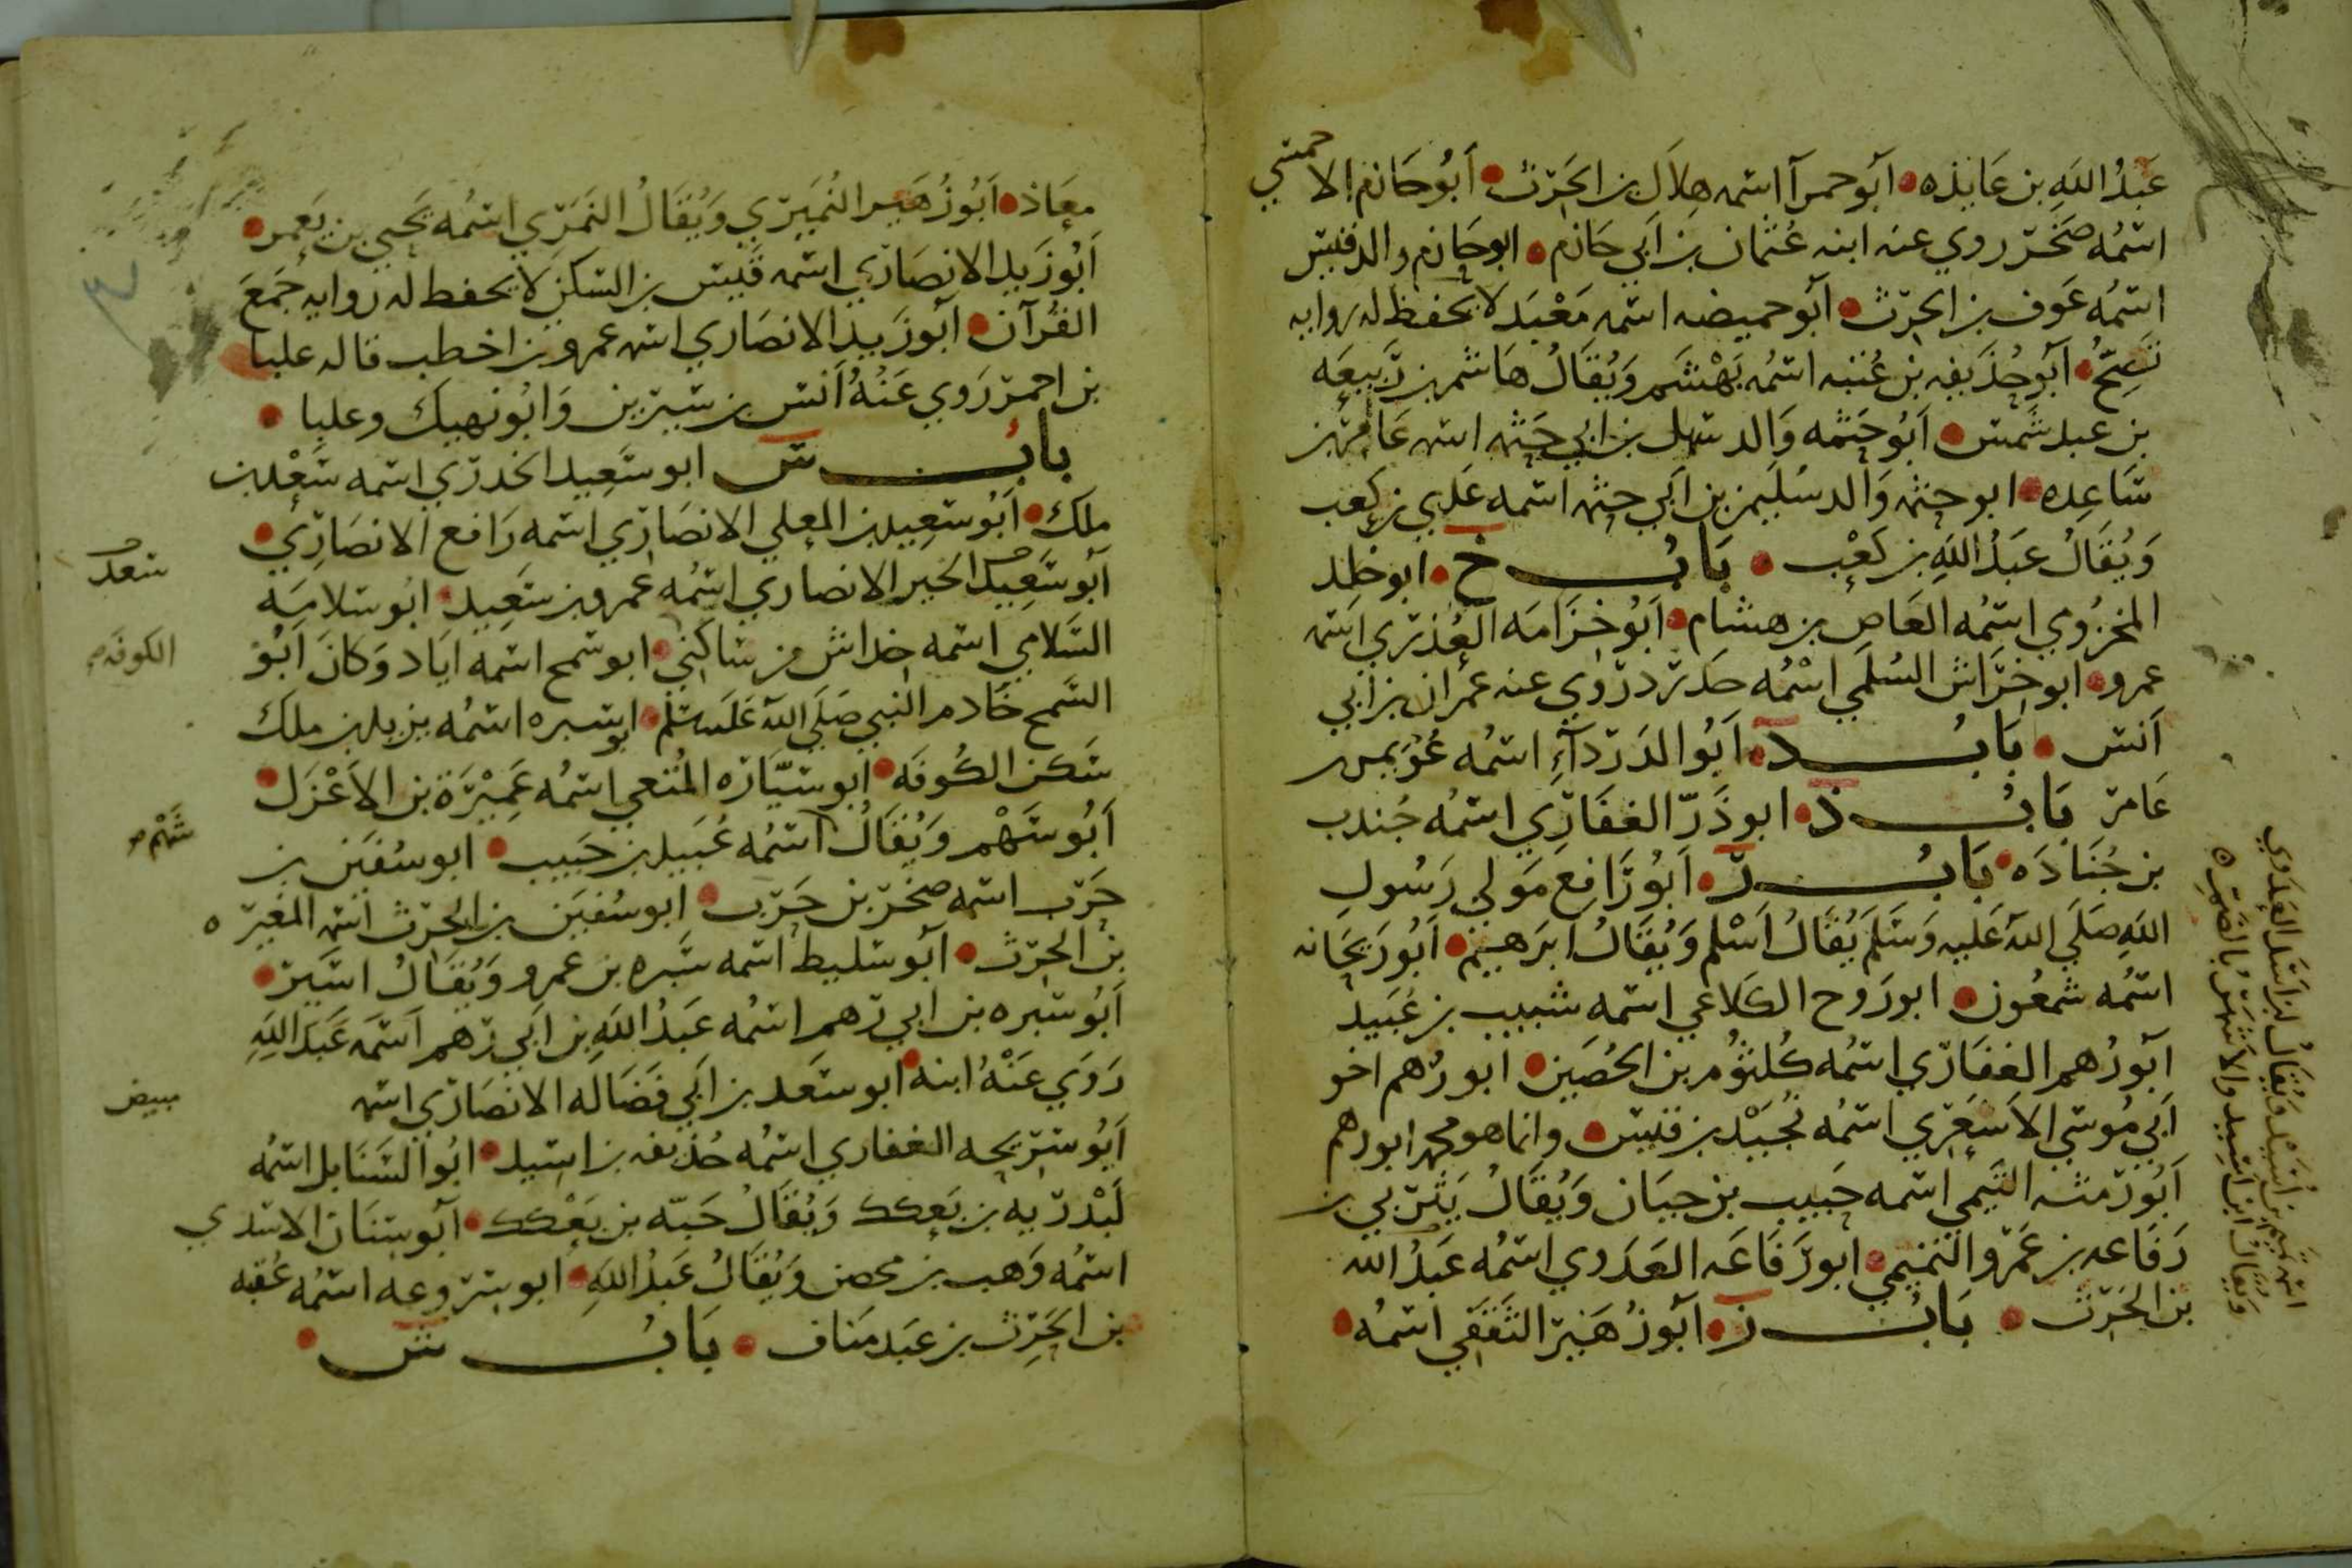 عَبْدُ اللَّهِ بن عَايذه • أبو حمرآ اسمه هِلَال بن الحَرث • أبُو حَازم الاحمسي
اسْمُه صَخْر روي عنه ابنه عُثمان بن أبي حَازم • ابو حازم والد قيس
اسْمُه عَوف بن الحرث • أبو حميضه اسمه مَعْبَد لا يحفظ له روايه
تَصِحّ • أبو حُذيفه بن عُتبه اسْمُه بَهْشَم وَيُقَالُ هَاشم بن رَبيعَه
بن عبد شَمس • أبُو حَثمه وَالد سهل بن ابي حثمه اسمه عَامر بن
سَاعِده • ابو حثمه وَالد سُلَيمن بن أبي حثمه اسمه عَدي بن كعب
وَيُقَالُ عَبدُ اللهِ بن كَعْب • بَابُ خ • ابو خلد
المخزُومي اسْمُه العَاص بن هشام • أبُو خزَامَه العُذري اسمه
عمرو • ابو خرَاش السُلَمي اسْمُه حَدرد رَوي عنه عمران بن أبي
أنس • بَابُ د • أبُو الدَردآءِ اسْمُه عُوَيمر بن
عَامر بَابُ ذ • ابو ذَرّ الغفَارِي اسْمُه جُندب
بن جُنَادَه • بَابُ ر • أبُو رَافِع مَولي رَسُولِ
اللهِ صَلَي اللهُ عَليه وَسَلَم يُقَالُ أَسْلم وَيُقَالُ ابرَهيم • أبُو رَيحَانه
اسْمُه شمعُون • ابو رَوح الكَلاعي اسْمه شبيب بن عُبَيد
أبُو رُهم الغفَارِي اسْمُه كُلثُوم بن الحُصَين • ابو رُهم اخو
أبي مُوسي الاَشعَري اسْمُه مُجَيْد بن قيس • وانما هو محمد ابو رهم
أبُو رمثه التَيمي اسْمه حَبيب بن حيَان وَيُقَالُ يَثرَبي بن
رَفَاعه بن عَمرو التميمي • ابو رَفَاعَه العَدَوي اسْمُه عَبدُ الله
بن الحَرث • بَابُ ز • أبو زُهَير الثَقَفي اسْمُه •
اسْمه تميم بن أُسَيْد وَيُقَالُ بن اسَد العَدَوي
وَيُقَالُ ابن اسِيد والاشهَر بالضَم ه
معَاذ • أبُو زُهَير النُمَيري وَيُقَالُ النَمَري اسْمُه يَحيي بن يَعمر •
أبُو زَيد الانصَارِي اسْمه قَيس بن السَكن لا يحفظ له روايه جَمَعَ
القُرآن • أبو زَيد الانصَاري اسمه عمرو بن اخطب قاله علبا
بن احمر رَوي عَنْهُ أنس بن سيرين وَابُو نهيك وعلبا •
بابُ س ابو سَعِيد الخدرِي اسْمه سَعْد بن
ملك • أبُو سَعِيد بن المعلي الانصَارِي اسْمه رَافع الانصَارِي •
أبو سَعِيد الخير الانصاري اسْمُه عَمرو بن سَعِيد • ابُو سلامَه
السَلامي اسْمه خداش من ساكني • ابو سمح اسْمه ايَاد وَكانَ أبُو
السَمح خَادم النبي صَلَي اللهُ عَلَيه سَلّم • ابو سبره اسْمُه يزيد بن ملك
سَكن الكُوفَه • أبو سيَّارَه المُتَعي اسْمُه عَمِيْرَة بن الاَعْزَل •
أبُو سَهْم وَيُقَالُ اسْمُه عُبَيد بن حَبيب • ابو سُفيَن بن
حَرب اسْمه صَخر بن حَرب • ابو سُفيَن بن الحرث اسْمه المغيره
بن الحرث • أبو سَليط اسْمه سَبره بن عمرو وَيُقَالُ اسَير •
أبُو سبره بن ابي رُهم اسْمُه عَبدُ اللهِ بن أبي رُهم اسْمَه عَبدَ اللهِ
رَوَي عَنْهُ ابنه • ابو سَعد بن أبي فَضَاله الانصَارِي اسْمه
أبُو سَرِيحه الغفاري اسْمُه حُذيفه بن اسيد • ابُو السَنابل اسْمُه
لَبْدرَيه بن بَعكك وَيُقَالُ حَبّه بن بَعْكك • أبو سنَان الاسَدي
اسْمُه وَهب بن محصن وَيُقَالُ عَبدُ اللهِ • ابو سروعه اسْمُه عُقبه
بن الحَرث بن عَبد مَناف • بَابُ ش •
سعد
الكوفه
شَهْم
مبيض